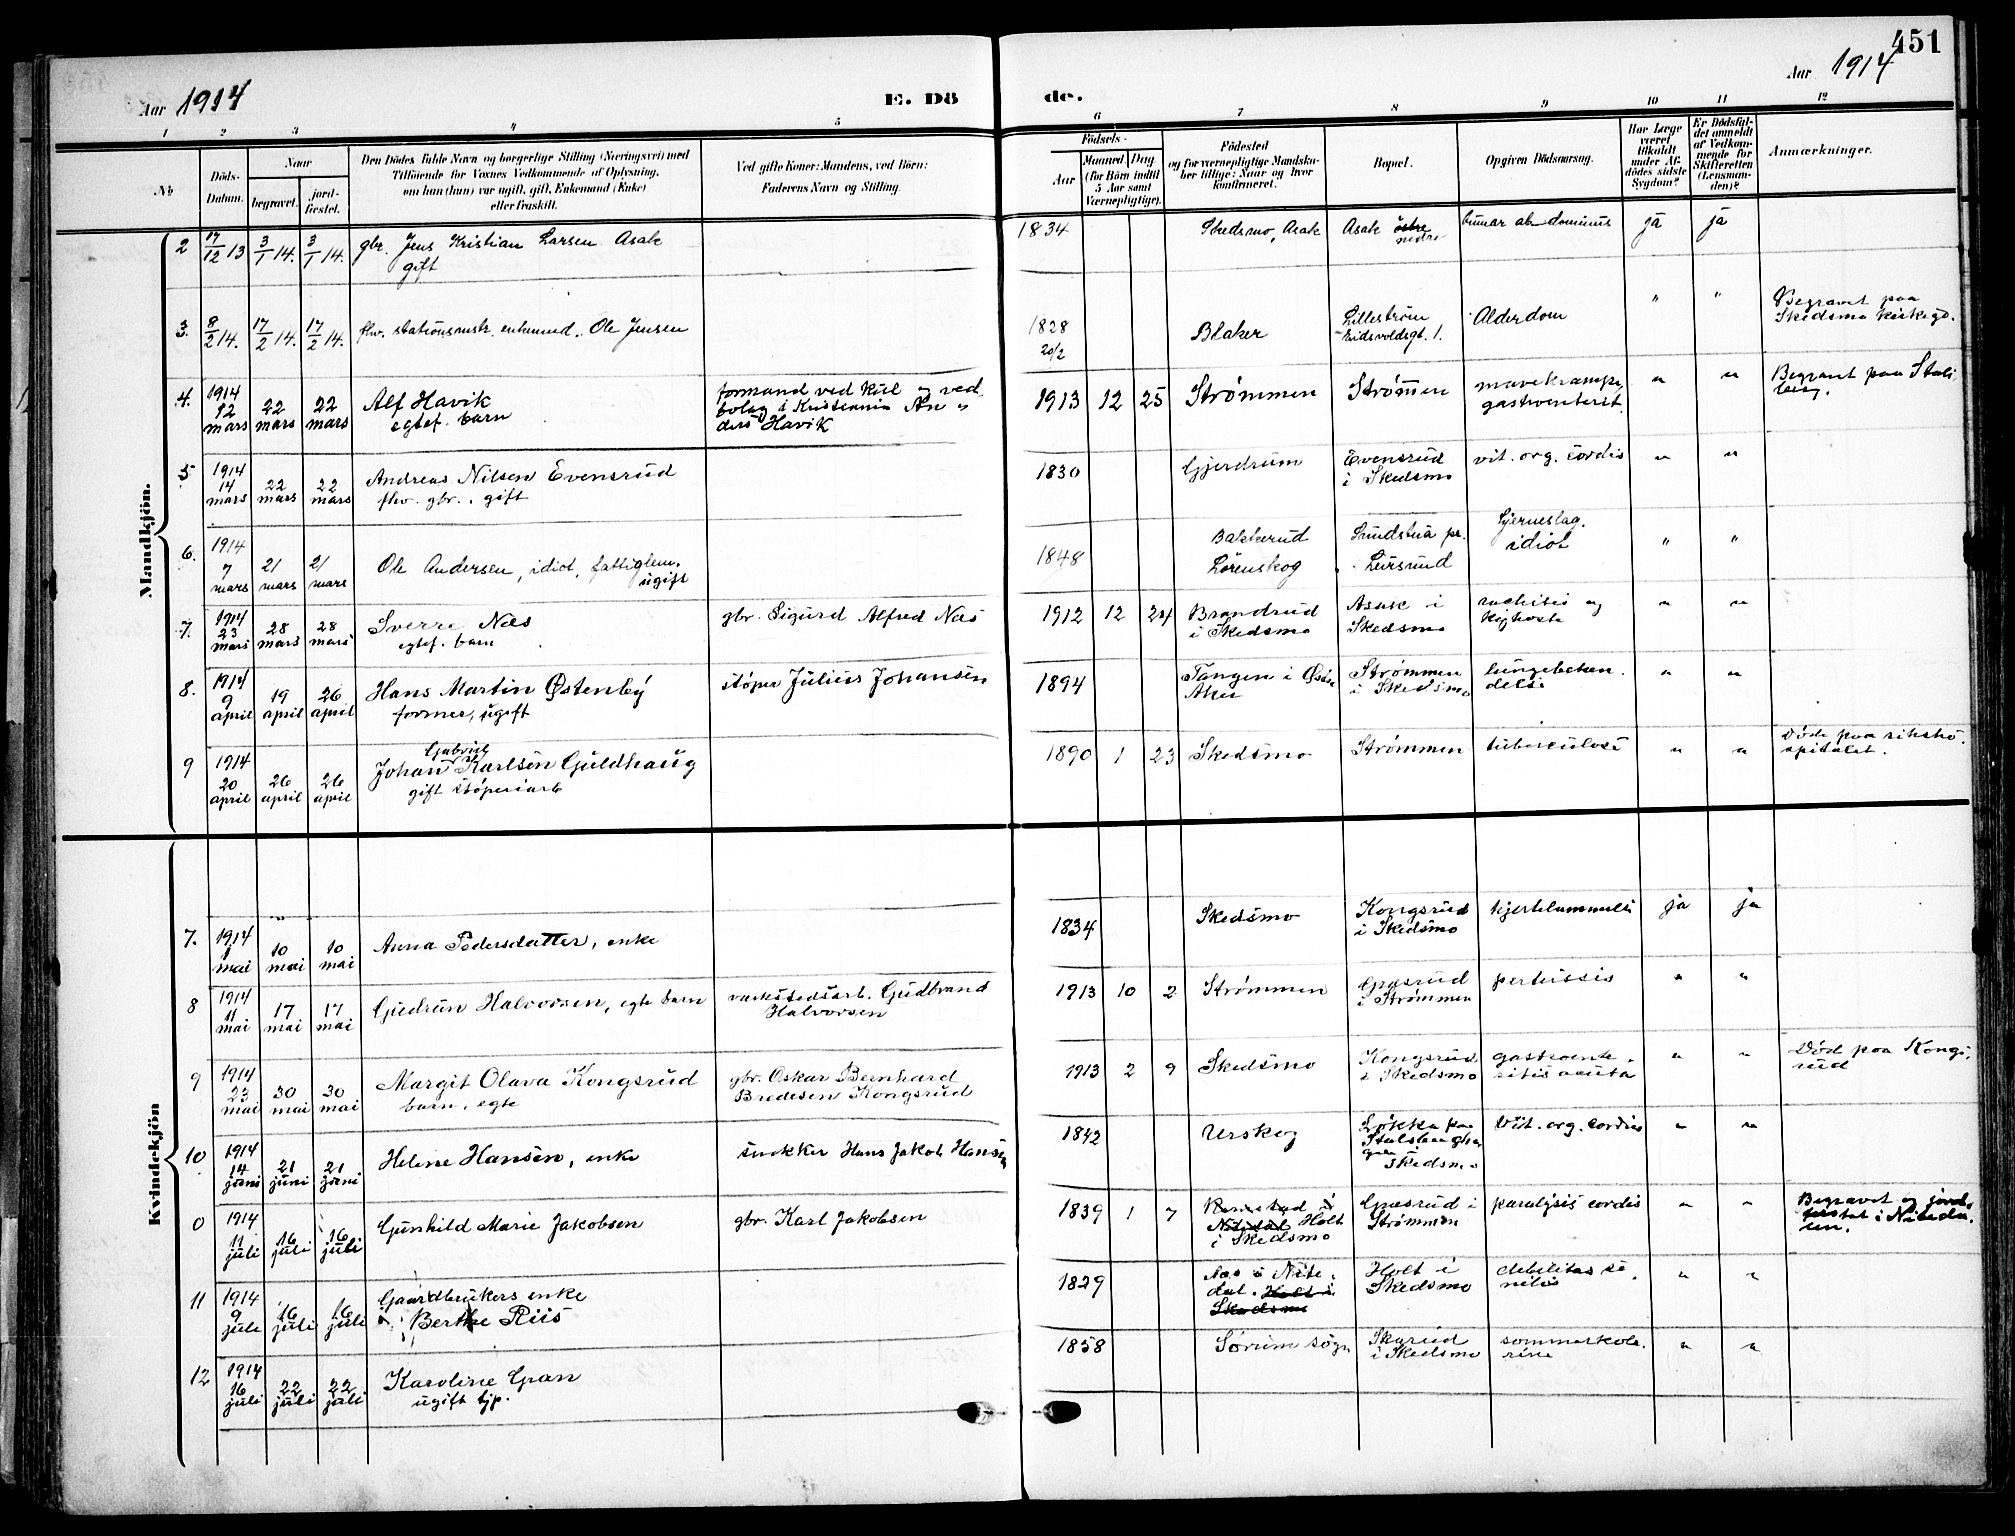 451
Aar 1914
E. Dö
de.
Aar 1914
1 2 3 4 5 6 7 8 9 10 11 12
No
Döds-
Datum.
Naar
begravet.
jord-
fæstet.
Den Dödes fulde Navn og borgerlige Stilling (Næringsvei) med
Tilföiende for Voxnes Vedkommende af Oplysning,
om han (hun) var ugift, gift, Enkemand (Enke)
eller fraskilt.
Ved gifte Koner: Mandens, ved Börn:
Faderens Navn og Stilling.
Födsels-
Aar
Maaned
(for Börn indtil
5 Aar samt
Værnepligtige).
Dag
Födested
og for værnepligtige Mandska-
ber tillige: Naar og hvor
konfirmeret.
Bopæl.
Opgiven Dödsaarsag.
Har Læge
været
tilkaldt
under Af-
dödes sidste
Sygdom?
Er Dödsfal-
det anmeldt
af Vedkom-
mende for
Skifteretten
(Lensman-
den)?
Anmærkninger.
Mandkjön.
2 17/12 13 3/1 14. 3/1 14. gbr. Jens Kristian Larsen Asak 1834 Skedsmo, Asak Asak östre ja ja
gift nedre
3. 8/2 14. 17/2 14. 17/2 14. fhv. stationsmstr. enkemand. Ole Jensen 1828 Blaker Lillestrøm Alderdom " " Begravet paa
20/2 Eidsvoldsgt. 1. Skedsmo kirkegd.
4. 1914 12 mars 22 mars 22 mars Alf Havik formand ved kul og ved- 1913 12 25 Strømmen Strømmen mavekrampe, " " Begravet paa Stal-
egtef. barn bolag i Kristiania An- gastroenterit. berg.
ders Havik
5 1914 14 mars 22 mars 22 mars Andreas Nilsen Evensrud 1830 Gjerdrum Evensrud vit. org. cordis " "
fhv. gbr., gift i Skedsmo
6. 1914 7 mars 21 mars 21 mars Ole Andersen, idiot, fattiglem. 1848 Bakkerud Sundstua pr. Hjerneslag. " "
ugift Lørenskog Leirsund idiot
7. 1914 23 mars 28 mars 28 mars Sverre Næs gbr. Sigurd Alfred Næs 1912 12 24 Brandrud Asak i rachitis og " "
egtef. barn i Skedsmo Skedsmo kighoste
8. 1914 9 april 19 april 26 april Hans Martin Østenby støper Julius Johansen 1894 Tangen i Østre Strømmen lungebeten- " "
former, ugift Aker i Skedsmo delse
9 1914 20 april 26 april 26 april Johan Gabriel Karlsen Guldhaug 1890 1 23 Skedsmo Strømmen tuberculose " " Døde paa rikshö-
gift støperiarb spitalet.
Kvindekjön
7. 1914 1 mai 10 mai 10 mai Anna Pedersdatter, enke 1834 Skedsmo Kongsrud ja ja
i Skedsmo
8 1914 11 mai 17 mai 17 mai Gudrun Halvorsen, egte barn verkstedsarb. Gudbrand 1913 10 2 Strømmen pertussis " "
Halvorsen i Strømmen
9 1914 23 mai 30 mai 30 mai Margit Olava Kongsrud gbr. Oskar Bernhard 1913 2 9 Skedsmo Kongsrud gastroente- " " Død paa Kongs-
barn, egte Bredesen Kongsrud i Skedsmo ritis acuta rud
10 1914 14 juni 21 juni 21 juni Helene Hansen, enke snekker Hans Jakob Hansen 1842 Urskog Løkka paa Vit. org. cordis " "
Skedsmo
0 1914 11 juli 16 juli 16 juli Gunhild Marie Jakobsen gbr. Karl Jakobsen 1839 1 7 i paralysis cordis " " Begravet og jord-
Nitedal Holt Strømmen festet i Niteda-
i Skedsmo len.
11 1914 9 juli 16 juli 16 juli Gaardbrukers enke 1829 Aas i Nite- Holt i debilitas se- " "
Berthe Riis dal. Holt i Skedsmo nilis
Skedsmo
12 1914 16 juli 22 juli 22 juli Karoline Gran 1858 Sørum sogn Skarud sommerkole- " "
ugift tjp. i Skedsmo rine